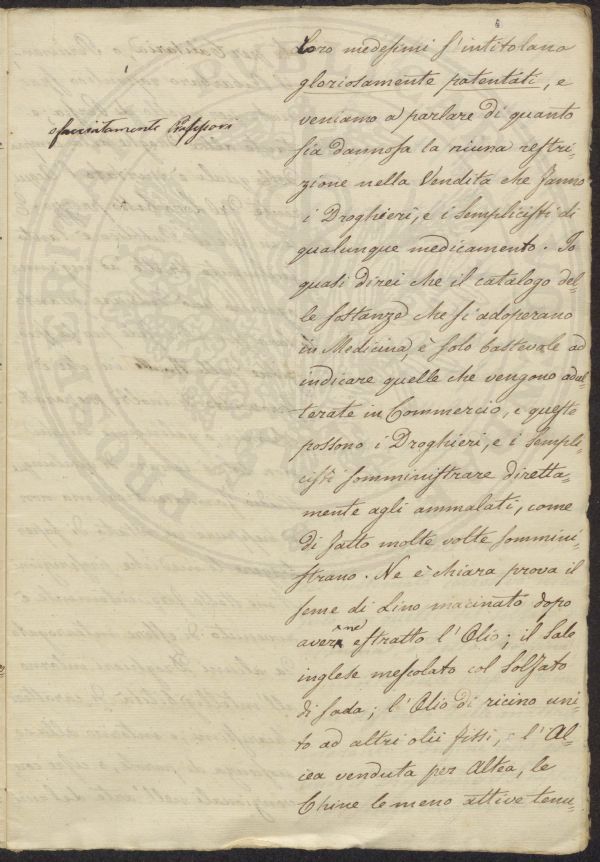 Loro medesimi s'intitolano
gloriosamente patentati, e
veniamo a parlare di quanto
sia dannosa la niuna restri-
zione nella Vendita che fanno
i Droghieri, e i semplicisti di
qualunque medicamento. Io
quasi direi che il catalogo del-
le sostanze che si adoperano
in Medicina, è solo bastevole ad
indicare quelle che vengono adul-
terate in Commercio, e queste
possono i Droghieri, e i sempli-
cisti somministrare diretta-
mente agli ammalati, come
di fatto molte volte sommini-
strano. Ne è chiara prova il
seme di Lino macinato dopo
averne estratto l'Olio; il Sale
inglese mescolato col Solfato
di soda; l'Olio di ricino uni-
to ad altri olii fissi, l'Al-
cea venduta per Altea, le
Chine le meno attive tenu-